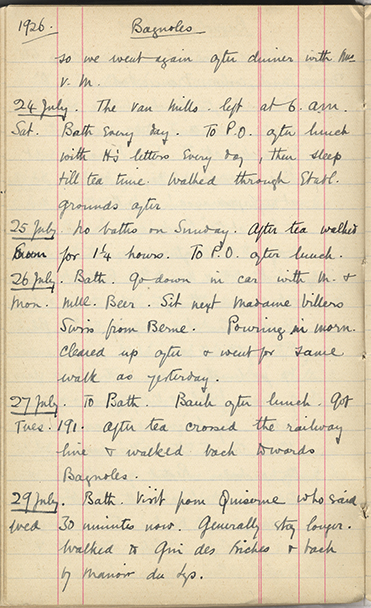 1926. Bagnoles
so we went again after dinner with Mrs
V. M.
24 July. The Van Mills left at 6. a.m.
Sat. Bath every day. To P.O. after lunch
with H's letters every day, then sleep
till tea time. Walked through Etabl.
grounds after
25 July. No baths on Sunday. After tea walked
for 1 1/4 hours. To P.O. after lunch.
26 July. Bath. Go down in car with M. &
Mon. Mlle. Beer. Sit next Madame Villers
Swiss from Berne. Pouring in morn.
Cleared up after & went for same
walk as yesterday.
27 July. To Bath. Bank after lunch. Got
Tues. 191. After tea crossed the railway
line & walked back towards
Bagnoles.
29 July. Bath. Visit from Quiserne who said
Wed 30 minutes now. Generally stay longer.
Walked to des & back
by Manoir du Lys.